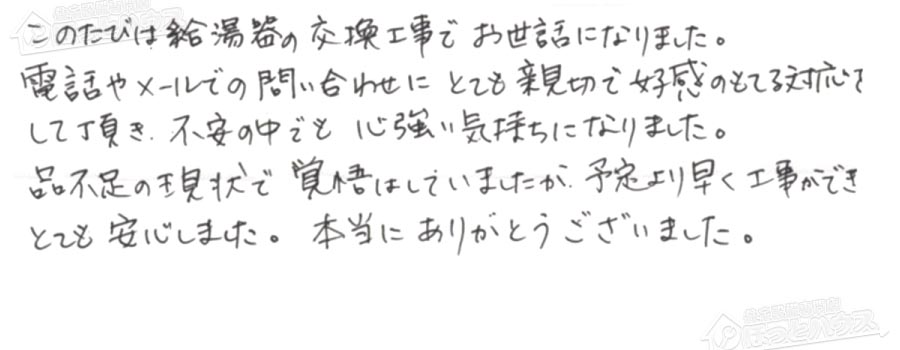 このたびは給湯器の交換工事でお世話になりました。
電話やメールでの問い合わせにとても親切で好感のもてる対応を
して頂き、不安の中でも心強い気持ちになりました。
品不足の現状で覚悟はしていましたが、予定より早く工事ができ
とても安心しました。本当にありがとうございました。
ほっとハウス